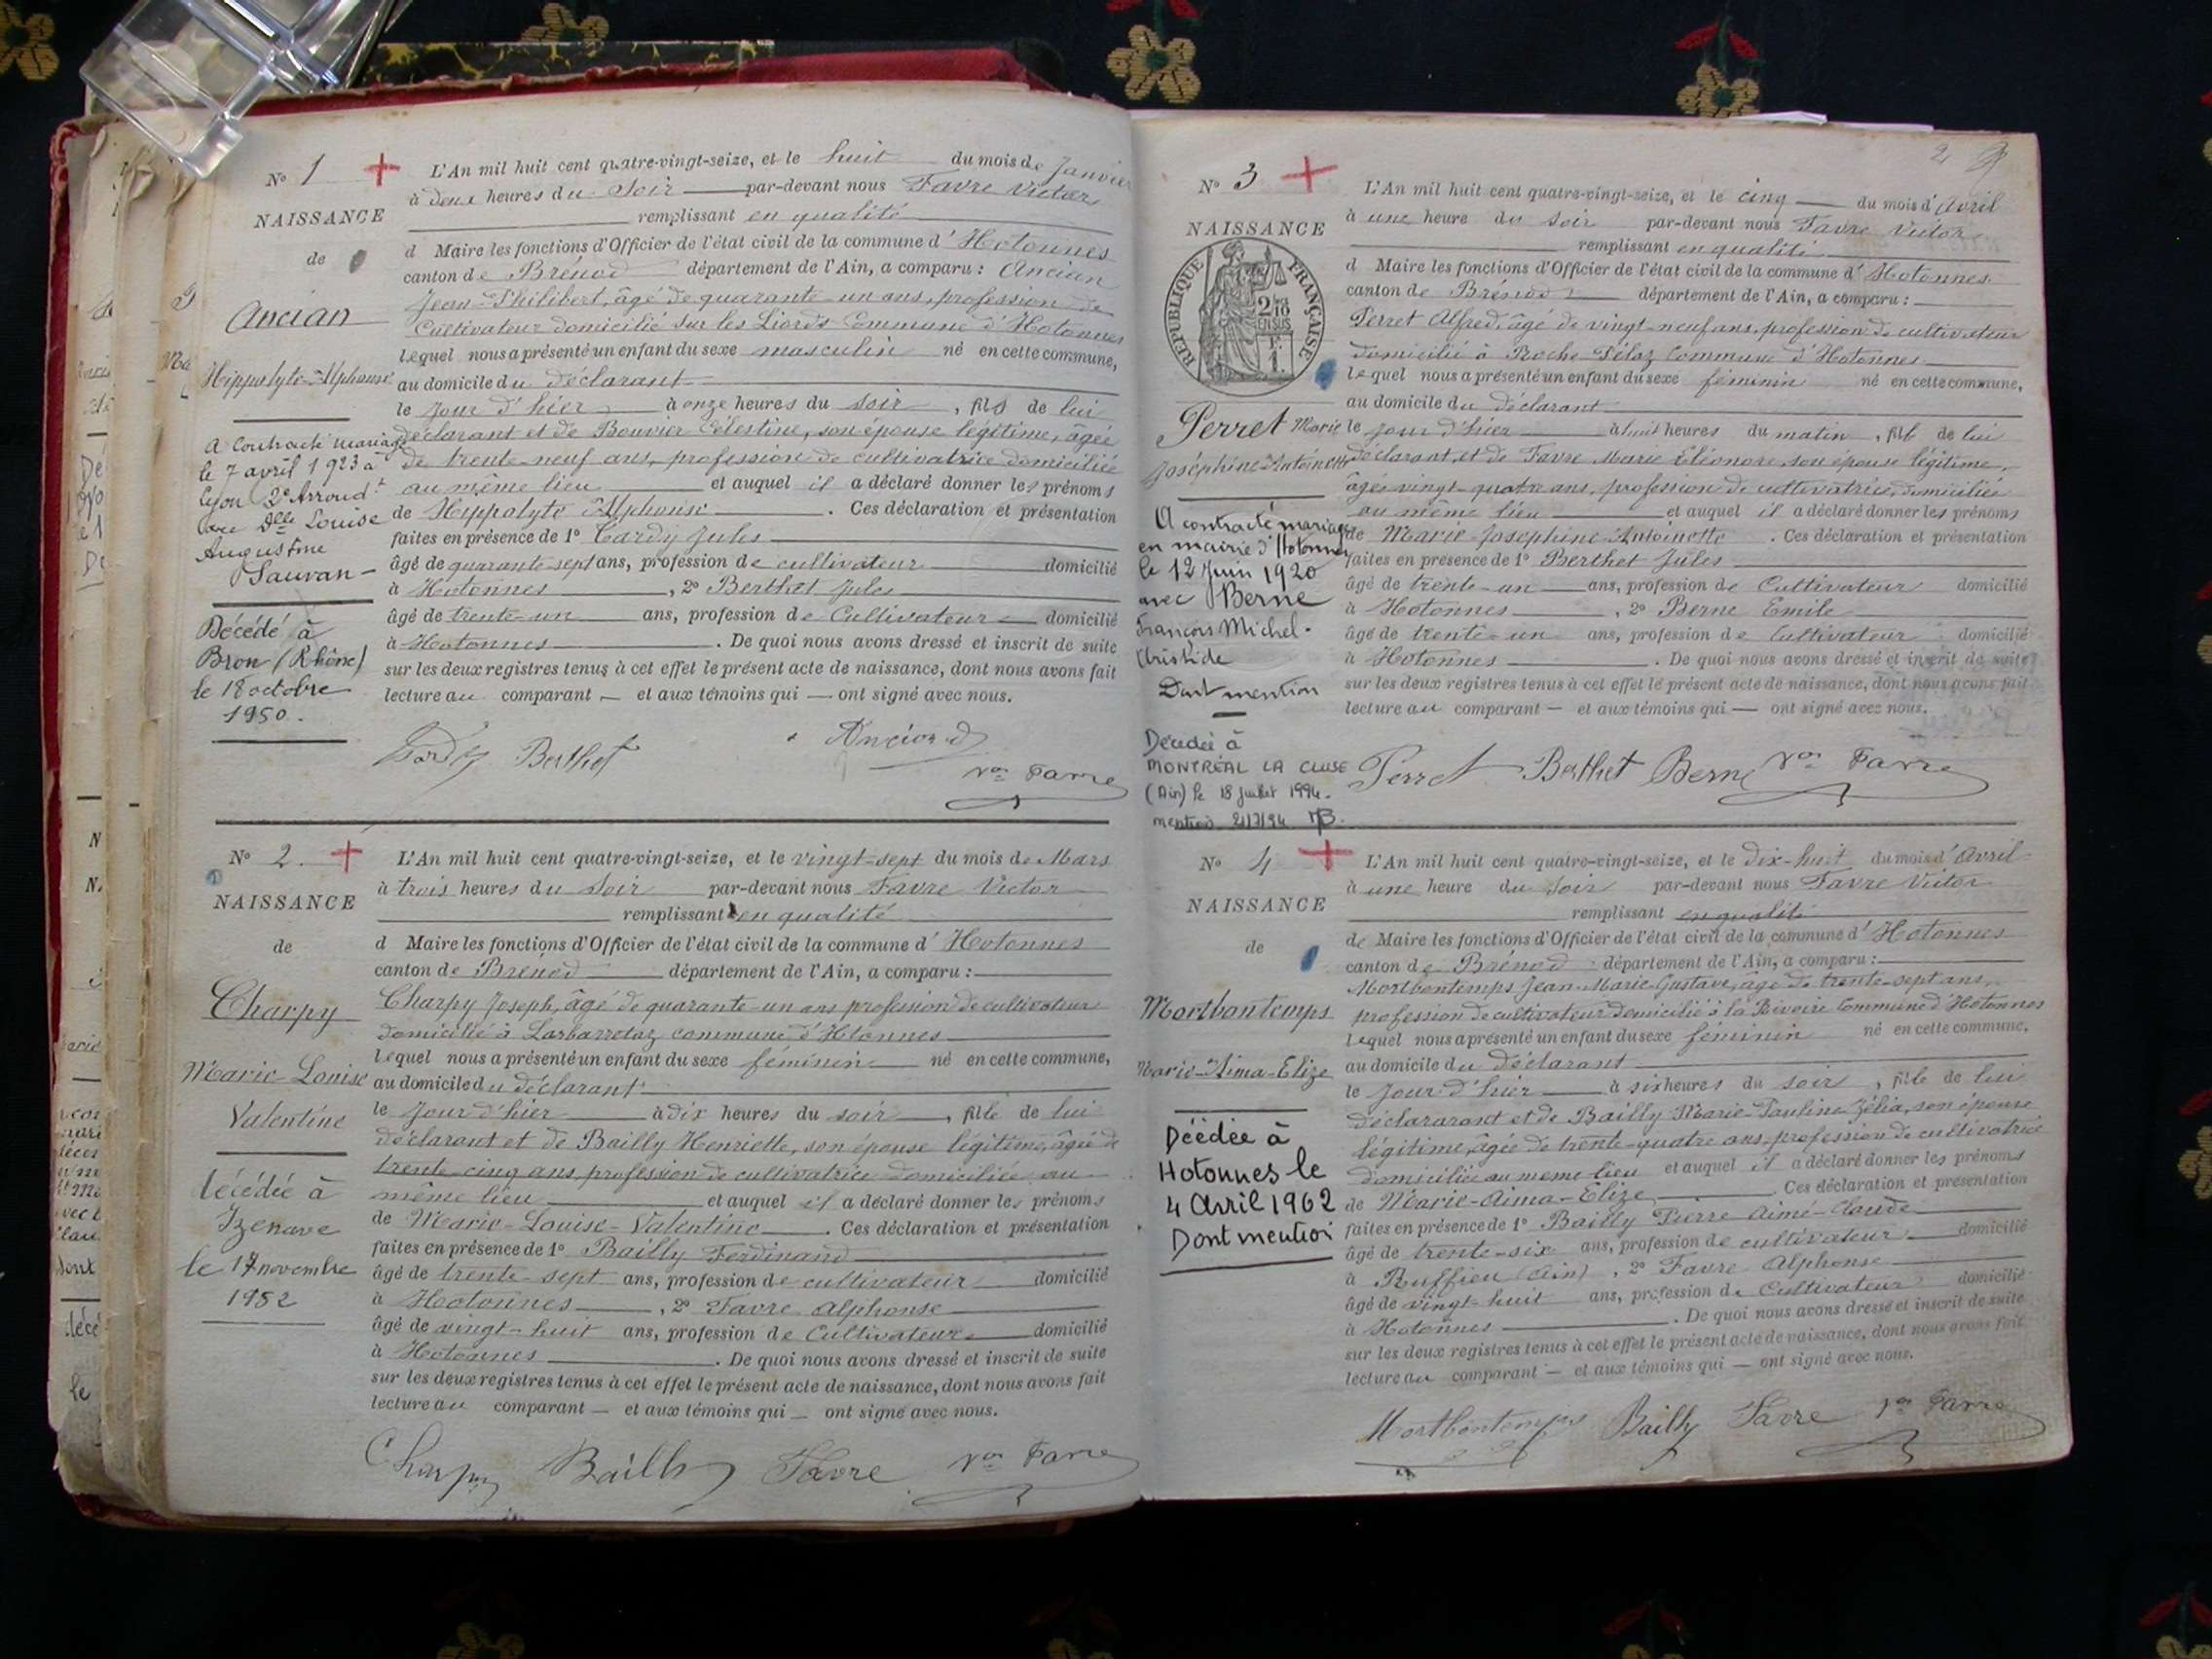 Nº 1
NAISSANCE
de
Ancian
Hippolyte-Alphonse
A contracté mariage
le 7 avril 1923 à
Lyon 2e Arrondt
avec Dlle Louise
Augustine
Sauvan
Décédé à
Bron (Rhône)
le 18 octobre
1950.
L'An mil huit cent quatre-vingt-seize, et le huit du mois de Janvier
à deux heures du Soir par-devant nous Favre Victor
remplissant en qualité
d Maire les fonctions d'Officier de l'état civil de la commune d'Hotonnes
canton de Brénod département de l'Ain, a comparu : Ancian
Jean-Philibert, âgé de quarante-un ans, profession de
Cultivateur domicilié sur les Liords Commune d'Hotonnes
lequel nous a présenté un enfant du sexe masculin né en cette commune,
au domicile du déclarant
le jour d'hier à onze heures du soir, fils de lui
déclarant et de Bouvier Célestine, son épouse légitime, âgée
de trente-neuf ans, profession de cultivatrice domiciliée
au même lieu et auquel il a déclaré donner les prénoms
de Hyppolyte Alphonse. Ces déclaration et présentation
faites en présence de 1º Cardy Jules
âgé de quarante-sept ans, profession de cultivateur domicilié
à Hotonnes, 2º Berthet Jules
âgé de trente-un ans, profession de Cultivateur domicilié
à Hotonnes. De quoi nous avons dressé et inscrit de suite
sur les deux registres tenus à cet effet le présent acte de naissance, dont nous avons fait
lecture au comparant et aux témoins qui ont signé avec nous.
Berthet
Vor Favre
Nº 2.
NAISSANCE
de
Charpy
Marie-Louise
Valentine
Décédée à
Izenave
le 17 novembre
1982
L'An mil huit cent quatre-vingt-seize, et le vingt-sept du mois de Mars
à trois heures du Soir par-devant nous Favre Victor
remplissant en qualité
d Maire les fonctions d'Officier de l'état civil de la commune d'Hotonnes
canton de Brénod département de l'Ain, a comparu :
Charpy Joseph, âgé de quarante-un ans profession de cultivateur
domicilié à Larbarretaz commune d'Hotonnes
lequel nous a présenté un enfant du sexe féminin né en cette commune,
au domicile du déclarant
le jour d'hier à dix heures du soir, fille de lui
déclarant et de Bailly Henriette, son épouse légitime, âgée de
trente-cinq ans, profession de cultivatrice domiciliée au
même lieu et auquel il a déclaré donner les prénoms
de Marie-Louise-Valentine. Ces déclaration et présentation
faites en présence de 1º Bailly Ferdinand
âgé de trente-sept ans, profession de cultivateur domicilié
à Hotonnes, 2º Favre Alphonse
âgé de vingt-huit ans, profession de Cultivateur domicilié
à Hotonnes. De quoi nous avons dressé et inscrit de suite
sur les deux registres tenus à cet effet le présent acte de naissance, dont nous avons fait
lecture au comparant et aux témoins qui ont signé avec nous.
Charpy Bailly Favre Vor Favre
2
Nº 3
NAISSANCE
RÉPUBLIQUE FRANÇAISE
2/10 EN SUS
Perret Marie
Joséphine-Antoinette
A contracté mariage
en mairie d'Hotonnes
le 12 Juin 1920
avec Berne
François Michel-
Aristide
Dont mention
Décédée à
MONTRÉAL LA CLUSE
(Ain) le 18 juillet 1994.
mention 21/7/94
L'An mil huit cent quatre-vingt-seize, et le cinq du mois d'Avril
à une heure du soir par-devant nous Favre Victor
remplissant en qualité
d Maire les fonctions d'Officier de l'état civil de la commune d'Hotonnes
canton de Brénod département de l'Ain, a comparu :
Perret Alfred, âgé de vingt-neuf ans, profession de cultivateur
domicilié à Roche Péloz Commune d'Hotonnes
lequel nous a présenté un enfant du sexe féminin né en cette commune,
au domicile du déclarant
le jour d'hier à huit heures du matin, fille de lui
déclarant et de Favre Marie Eléonore, son épouse légitime,
âgée vingt-quatre ans, profession de cultivatrice, domiciliée
au même lieu et auquel il a déclaré donner les prénoms
de Marie-Joséphine-Antoinette. Ces déclaration et présentation
faites en présence de 1º Berthet Jules
âgé de trente-un ans, profession de Cultivateur domicilié
à Hotonnes, 2º Berne Emile
âgé de trente-un ans, profession de Cultivateur domicilié
à Hotonnes. De quoi nous avons dressé et inscrit de suite
sur les deux registres tenus à cet effet le présent acte de naissance, dont nous avons fait
lecture au comparant et aux témoins qui ont signé avec nous.
Perret Berthet Berne Vor Favre
Nº 4
NAISSANCE
de
Mortbontemps
Marie-Aima-Elize
Déédée à
Hotonnes le
4 Avril 1962
Dont mention
L'An mil huit cent quatre-vingt-seize, et le dix-huit du mois d'Avril
à une heure du Soir par-devant nous Favre Victor
remplissant en qualité
de Maire les fonctions d'Officier de l'état civil de la commune d'Hotonnes
canton de Brénod département de l'Ain, a comparu :
Mortbontemps Jean-Marie-Gustave, âgé de trente-sept ans,
profession de cultivateur domicilié à la Rivoire Commune d'Hotonnes
lequel nous a présenté un enfant du sexe féminin né en cette commune,
au domicile du déclarant
le jour d'hier à six heures du soir, fille de lui
déclararant et de Bailly Marie-Pauline Zélia, son épouse
légitime, âgée de trente-quatre ans, profession de cultivatrice
domiciliée au meme lieu et auquel il a déclaré donner les prénoms
de Marie-Aima-Elize. Ces déclaration et présentation
faites en présence de 1º Bailly Pierre Aimé-Claude
âgé de trente-six ans, profession de cultivateur domicilié
à Ruffieu (Ain), 2º Favre Alphonse
âgé de vingt-huit ans, profession de Cultivateur domicilié
à Hotonnes. De quoi nous avons dressé et inscrit de suite
sur les deux registres tenus à cet effet le présent acte de naissance, dont nous avons fait
lecture au comparant et aux témoins qui ont signé avec nous.
Mortbontemps Bailly Favre Vor Favre